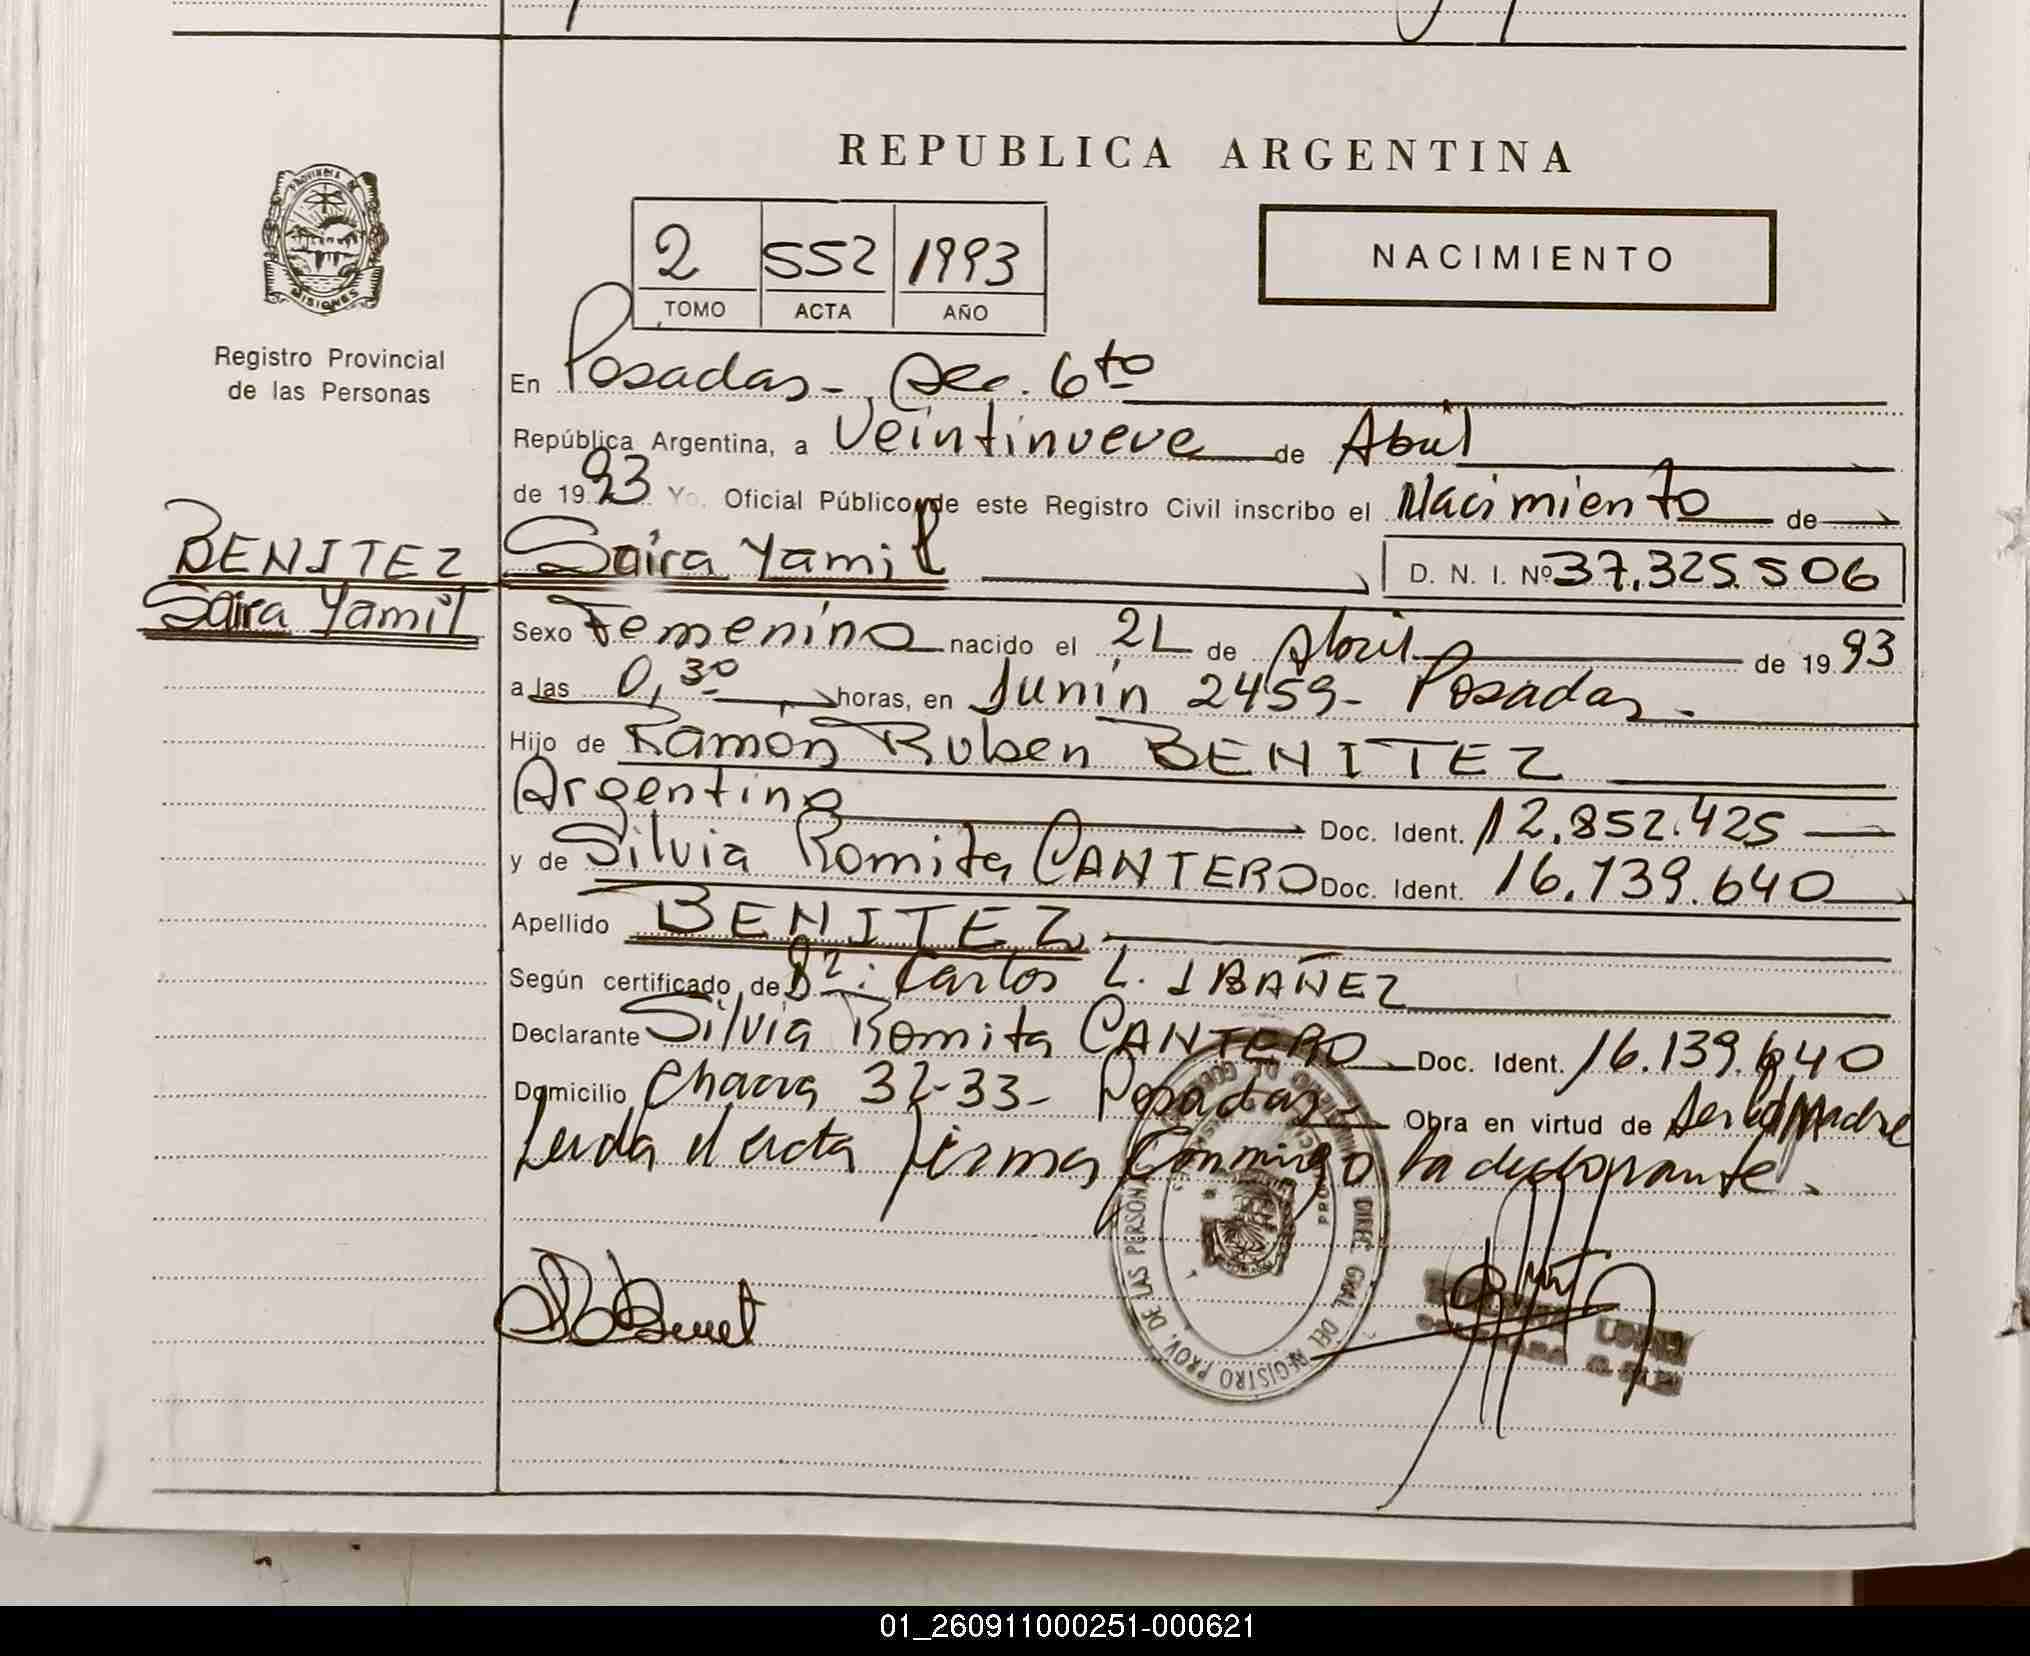 REPUBLICA ARGENTINA
PROVINCIA DE
MISIONES
Registro Provincial
de las Personas
2 552 1993
TOMO ACTA AÑO
NACIMIENTO
En Posadas - Sec. 6to
República Argentina, a Veintinueve de Abril
de 19 93 Yo, Oficial Público de este Registro Civil inscribo el Nacimiento de
BENITEZ
Saira Yamil
Saira Yamil D. N. I. Nº 37.325.506
Sexo Femenino nacido el 21 de Abril de 19 93
a las 0,30 horas, en Junín 2459 - Posadas -
Hijo de Ramon Ruben BENITEZ
Argentina Doc. Ident. 12.852.425
y de Silvia Romita CANTERO Doc. Ident. 16.139.640
Apellido BENITEZ
Según certificado de Dr. Carlos L. IBAÑEZ
Declarante Silvia Romita CANTERO Doc. Ident. 16.139.640
Domicilio Chacra 32-33 - Posadas - Obra en virtud de ser la Madre
Leida el acta firma conmigo la declarante.
DIREC. GRAL. DEL REGISTRO PROV. DE LAS PERSONAS
01_260911000251-000621